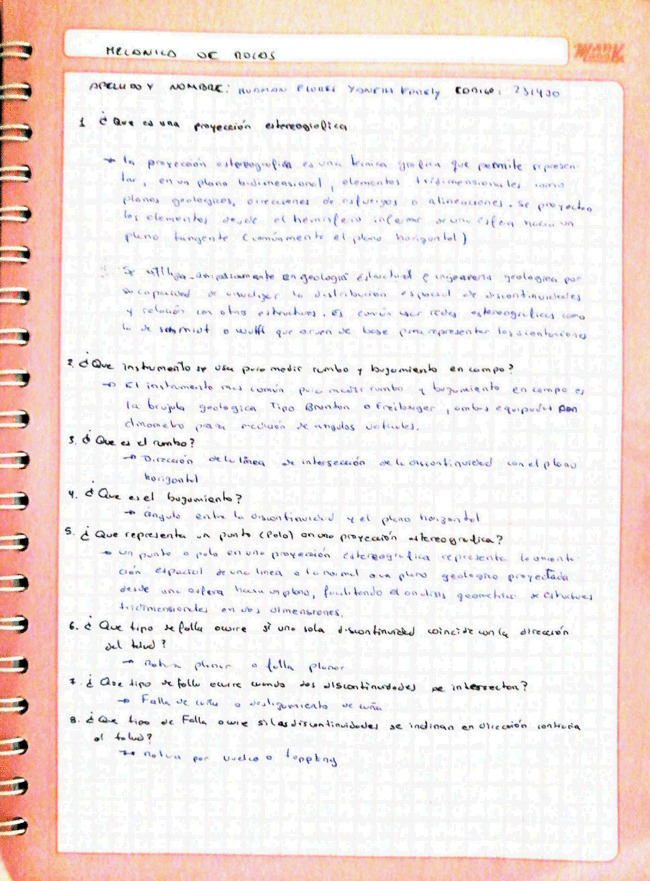 MECANICA DE ROCAS
APELLIDO Y NOMBRE: HUAMAN FLORES CODIGO: 231430
1 ¿Que es una proyección estereografica
→ la proyección estereografica es una tecnica grafica que permite represen-
tar, en un plano bidimensional, elementos tridimensionales como
planos geologicos, direcciones de esfuerzos o alineaciones. Se proyectan
los elementos desde el hemisferio inferior de una esfera hacia un
plano tangente (comúnmente el plano horizontal)
Se utiliza ampliamente en geología estructural e ingenieria geologica por
su capacidad de visualizar la distribución espacial de discontinuidades
y relación con otras estructuras. Es común usar redes estereograficas como
la de schmidt o wulff que sirven de base para representar las orientaciones
2. ¿Que instrumento se usa para medir rumbo y buzamiento en campo?
→ El instrumento mas común para medir rumbo y buzamiento en campo es
la brujula geologica Tipo Brunton o Freiberger, ambas equipadas con
clinometro para medición de angulos verticales.
3. ¿Que es el rumbo?
→ Dirección de la línea de intersección de la discontinuidad con el plano
horizontal
4. ¿Que es el buzamiento?
→ ángulo entre la discontinuidad y el plano horizontal
5. ¿Que representa un punto (Polo) en una proyección estereografica?
→ un punto o polo en una proyección estereografica representa la orienta-
ción espacial de una linea o la normal a un plano geologico proyectada
desde una esfera hacia un plano, facilitando el analisis geometrico de estructuras
tridimensionales en dos dimensiones.
6. ¿Que tipo de falla ocurre si una sola discontinuidad coincide con la dirección
del talud?
→ Rotura planar o falla planar
7. ¿Que tipo de falla ocurre cuando dos discontinuidades se intersectan?
→ Falla de cuña o deslizamiento de cuña
8. ¿Que tipo de Falla ocurre si las discontinuidades se inclinan en dirección contraria
al talud?
→ Rotura por vuelco o toppling